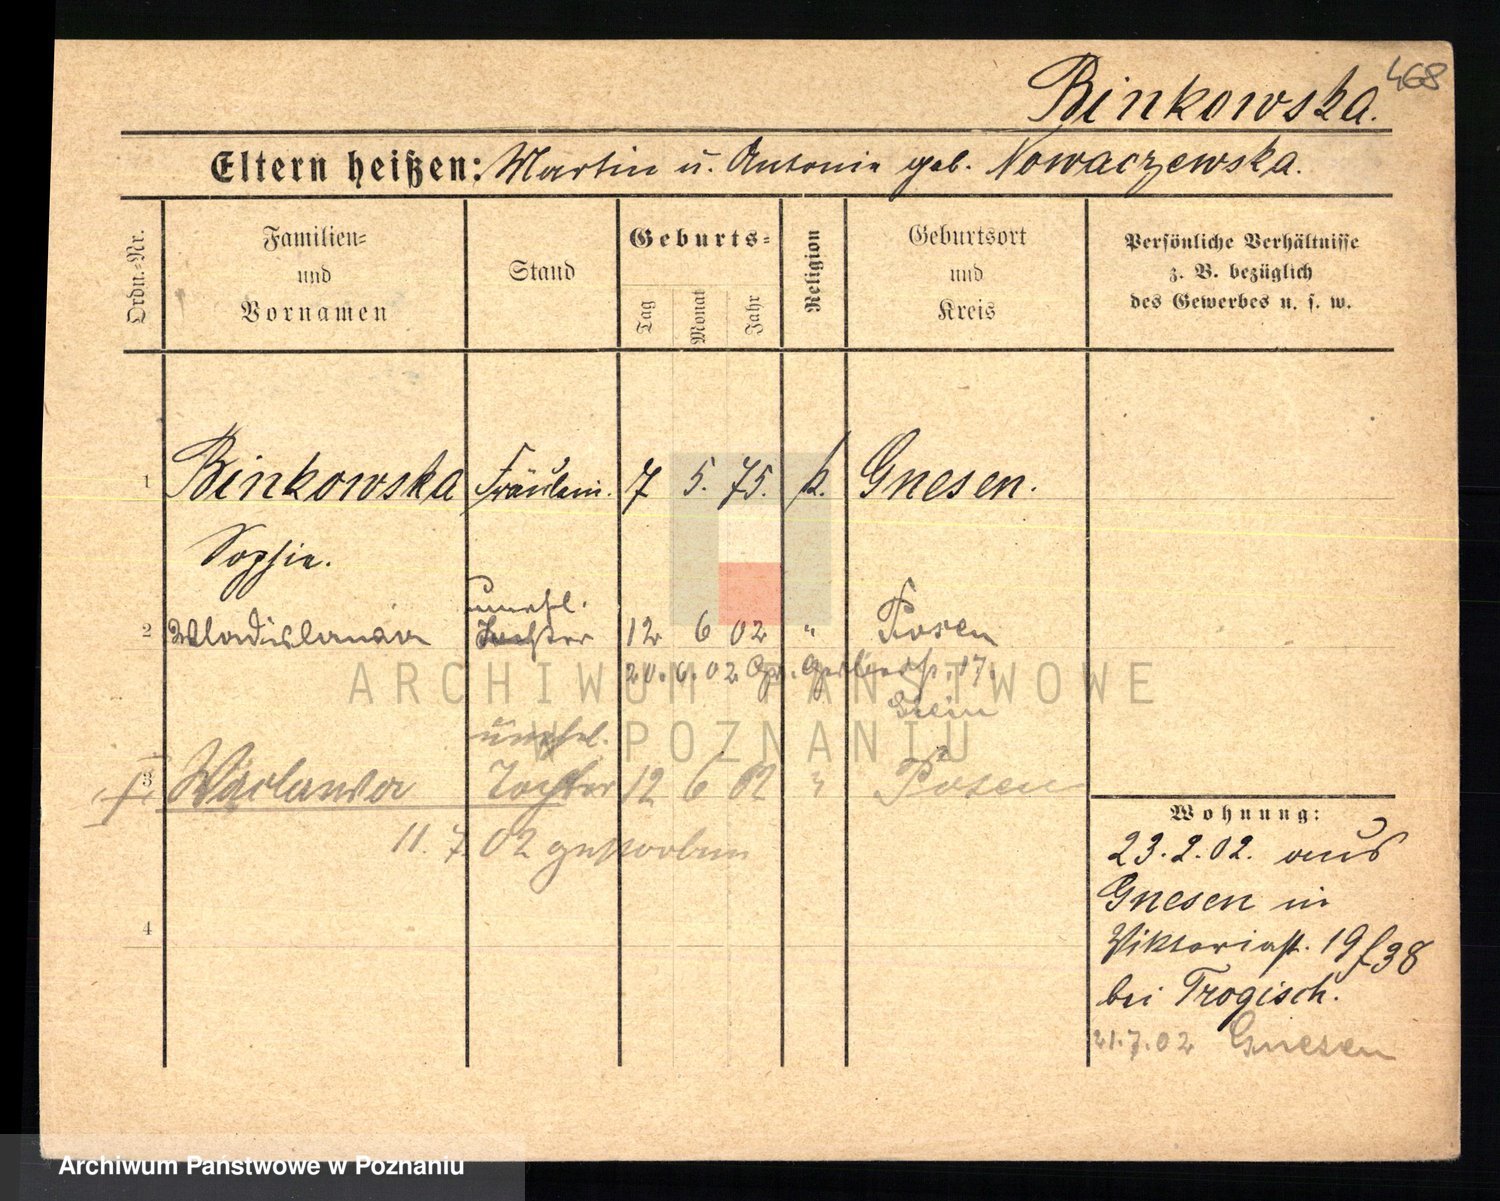 468
Binkowska.
Eltern heißen: Martin u. Antonie geb. Nowaczewska.
Ordn.-Nr.
Familien-
und
Vornamen
Stand
Geburts-
Tag
Monat
Jahr
Religion
Geburtsort
und
Kreis
Persönliche Verhältnisse
z. B. bezüglich
des Gewerbes u. s. w.
1 Binkowska Fräulein. 7 5. 75. k. Gnesen.
Sophie.
unehl.
2 Wladislawa Tochter 12 6 02 " Posen
20. 6. 02 17.
unehl.
3 Waclawa Tochter 12 6 02 " Posen
11. 7. 02 gestorben
4
Wohnung:
23. 2. 02. aus
Gnesen in
Viktoriast. 19 f 38
bei Trogisch.
21. 7. 02 Gnesen
ARCHIWUM PAŃSTWOWE
W POZNANIU
Archiwum Państwowe w Poznaniu